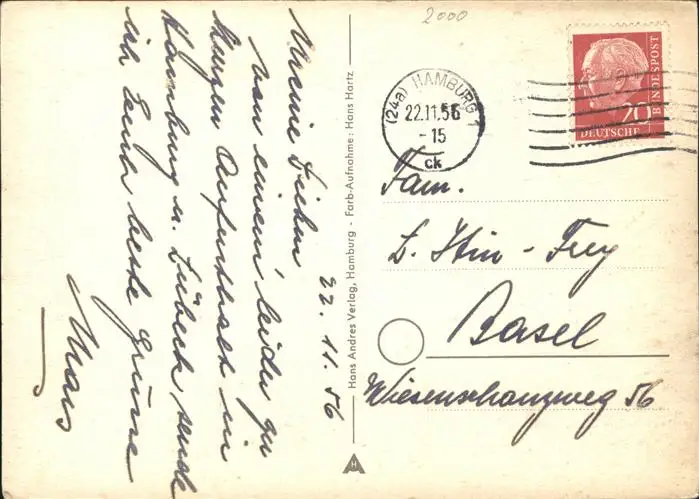 22.11.56
Meine Lieben
von einem leider zu
kurzen Aufenthalt in
Hamburg u. Lübeck sende
ich Euch beste Grüsse
Hans Andres Verlag, Hamburg - Farb-Aufnahme: Hans Hartz
H
2000
(24a) HAMBURG 1
22.11.56
-15
ck
20
DEUTSCHE
BUNDESPOST
Fam.
Frey
Basel
Wiesenschanzweg 56